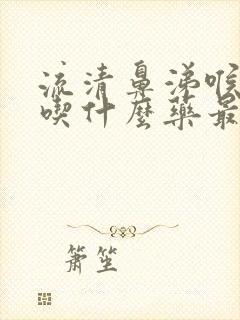 流清鼻涕喉
喫什麼藥最
簫笙